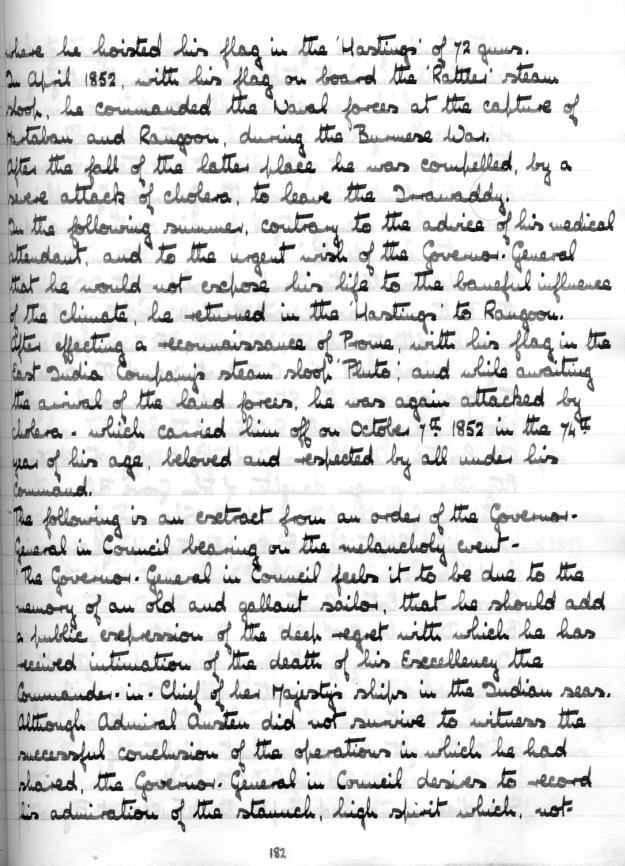 where he hoisted his flag in the 'Hastings' of 72 guns.
In April 1852, with his flag on board the 'Rattler' steam
sloop, he commanded the Naval forces at the capture of
Martaban and Rangoon, during the Burmese War.
After the fall of the latter place he was compelled, by a
severe attack of cholera, to leave the Irrawaddy.
In the following summer, contrary to the advice of his medical
attendant, and to the urgent wish of the Governor-General
that he would not expose his life to the baneful influence
of the climate, he returned in the 'Hastings' to Rangoon.
After effecting a reconnaissance of Prome, with his flag in the
East India Company's steam sloop 'Pluto', and while awaiting
the arrival of the land forces, he was again attacked by
cholera - which carried him off on October 7th 1852 in the 74th
year of his age, beloved and respected by all under his
command.
The following is an extract from an order of the Governor-
General in Council bearing on the melancholy event -
'The Governor-General in Council feels it to be due to the
memory of an old and gallant sailor, that he should add
a public expression of the deep regret with which he has
received intimation of the death of his Excellency the
Commander-in-Chief of her Majesty's ships in the Indian seas.
Although Admiral Austen did not survive to witness the
successful conclusion of the operations in which he had
shared, the Governor-General in Council desires to record
his admiration of the staunch, high spirit which, not-
182